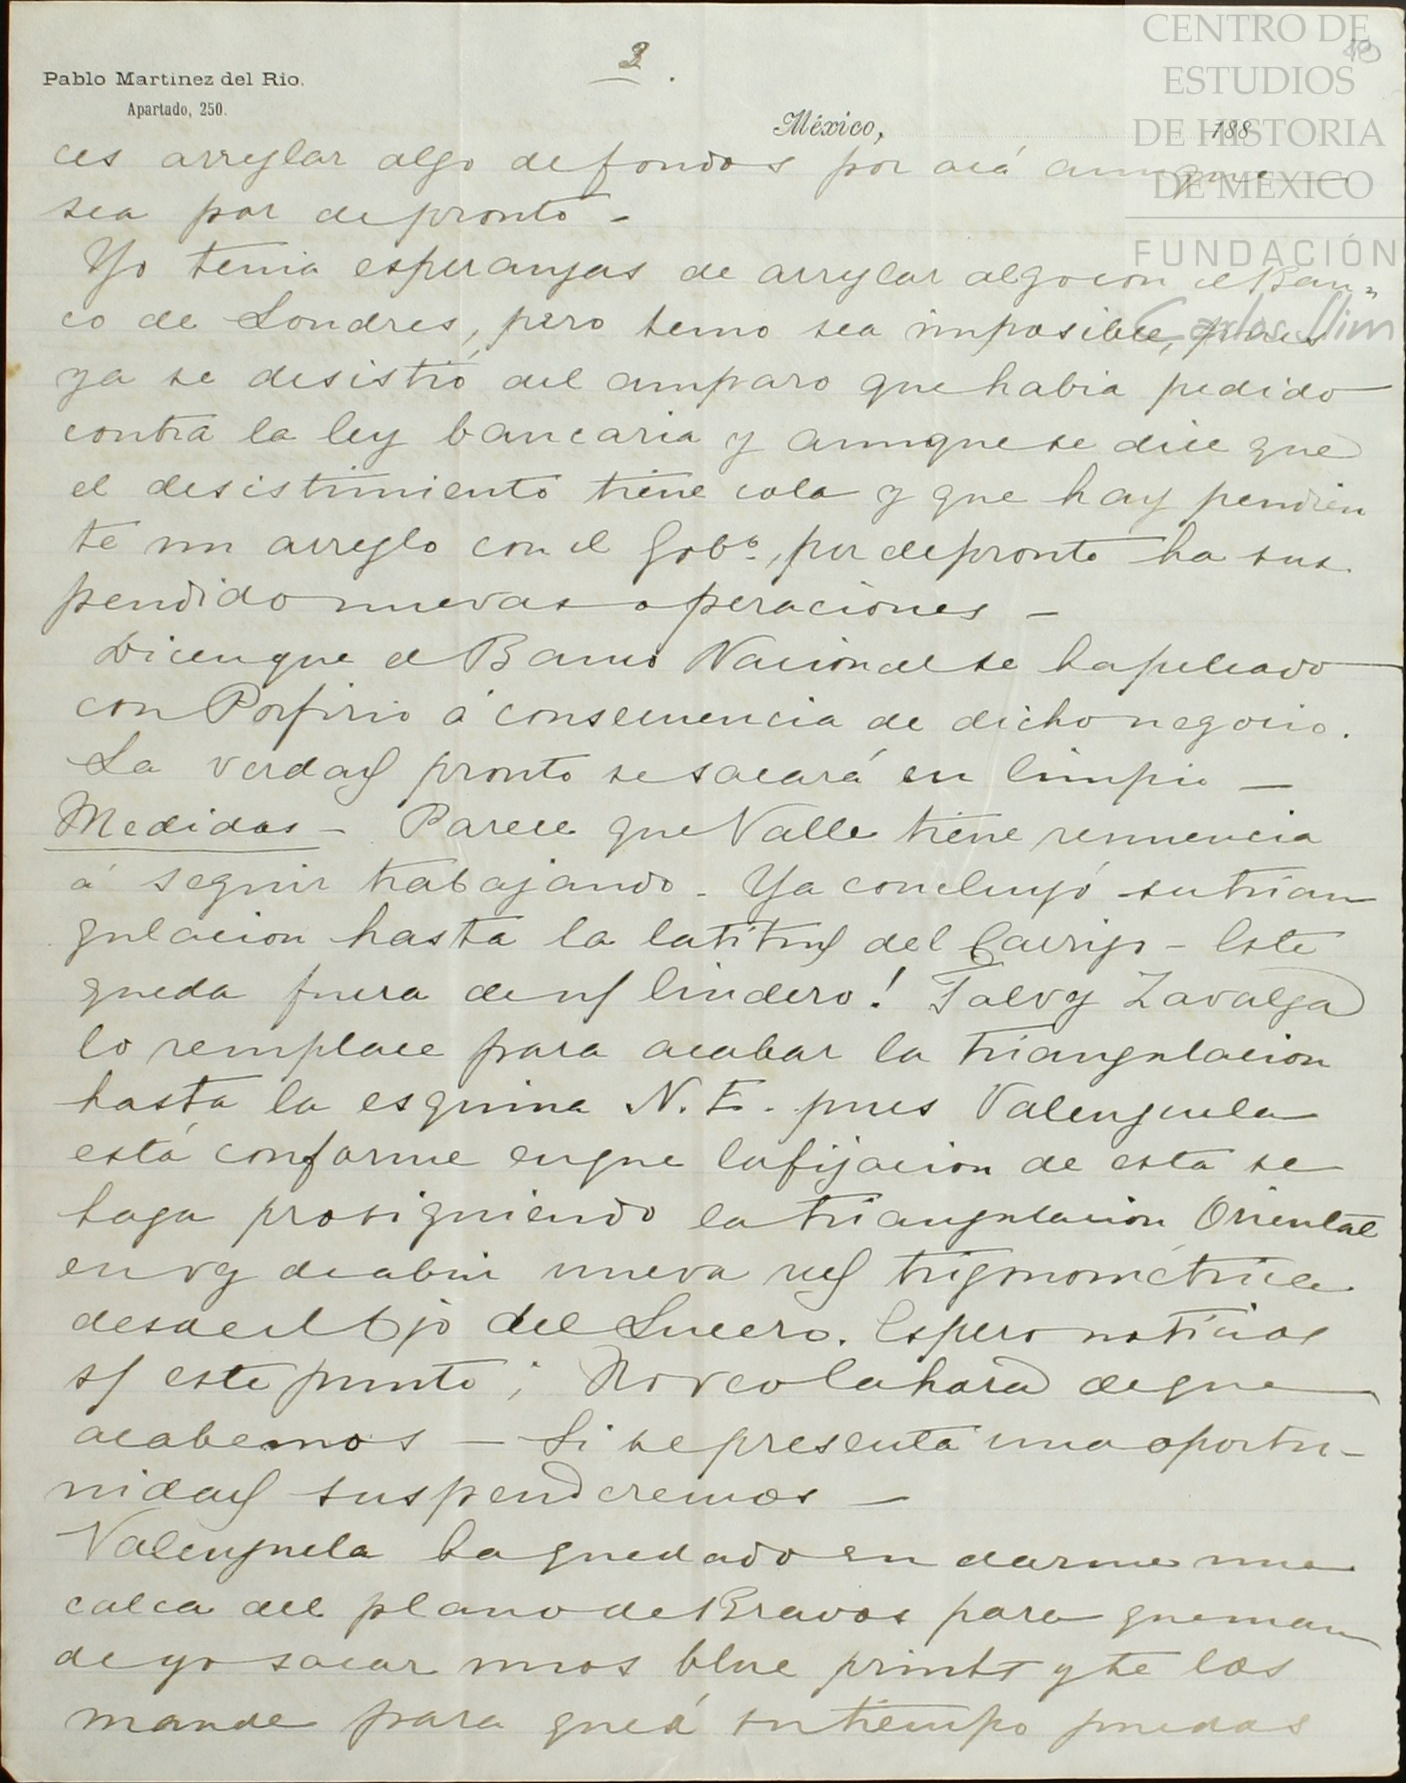 3.
CENTRO DE
ESTUDIOS
DE HISTORIA
DE MÉXICO
FUNDACIÓN
Carlos Slim
Pablo Martinez del Rio.
Apartado, 250.
México, 188
ces arreglar algo de fondos por acá aunque
sea por de pronto -
Yo tenia esperanzas de arreglar algo con el Ban-
co de Londres, pero temo sea imposible, pues
ya se desistió del amparo que habia pedido
contra la ley bancaria y aunque se dice que
el desistimiento tiene cola y que hay pendien
te un arreglo con el Gobº, por de pronto ha sus
pendido nuevas operaciones -
Dicen que el Banco Nacional se ha peleado
con Porfirio á consecuencia de dicho negocio.
La verdad pronto se sacará en limpio -
Medidas - Parece que Valle tiene renuencia
á seguir trabajando. Ya concluyó su trian
gulacion hasta la latitud del Carrizo - Este
queda fuera de ns/ lindero! Talvez Zavalza
lo remplace para acabar la triangulacion
hasta la esquina N.E. pues Valenzuela
está conforme en que la fijacion de esta se
haga prosiguiendo la triangulacion Oriental
en vez de abrir nueva red trigonométrica
desde el Ojo del Lucero. Espero noticias
s/ este punto; No veo la hora de que
acabemos - Si se presenta una oportu-
nidad suspenderemos -
Valenzuela ha quedado en darme una
calca del plano de Bravos para que man
de yo sacar unos blue prints y te los
mande para que á su tiempo puedas